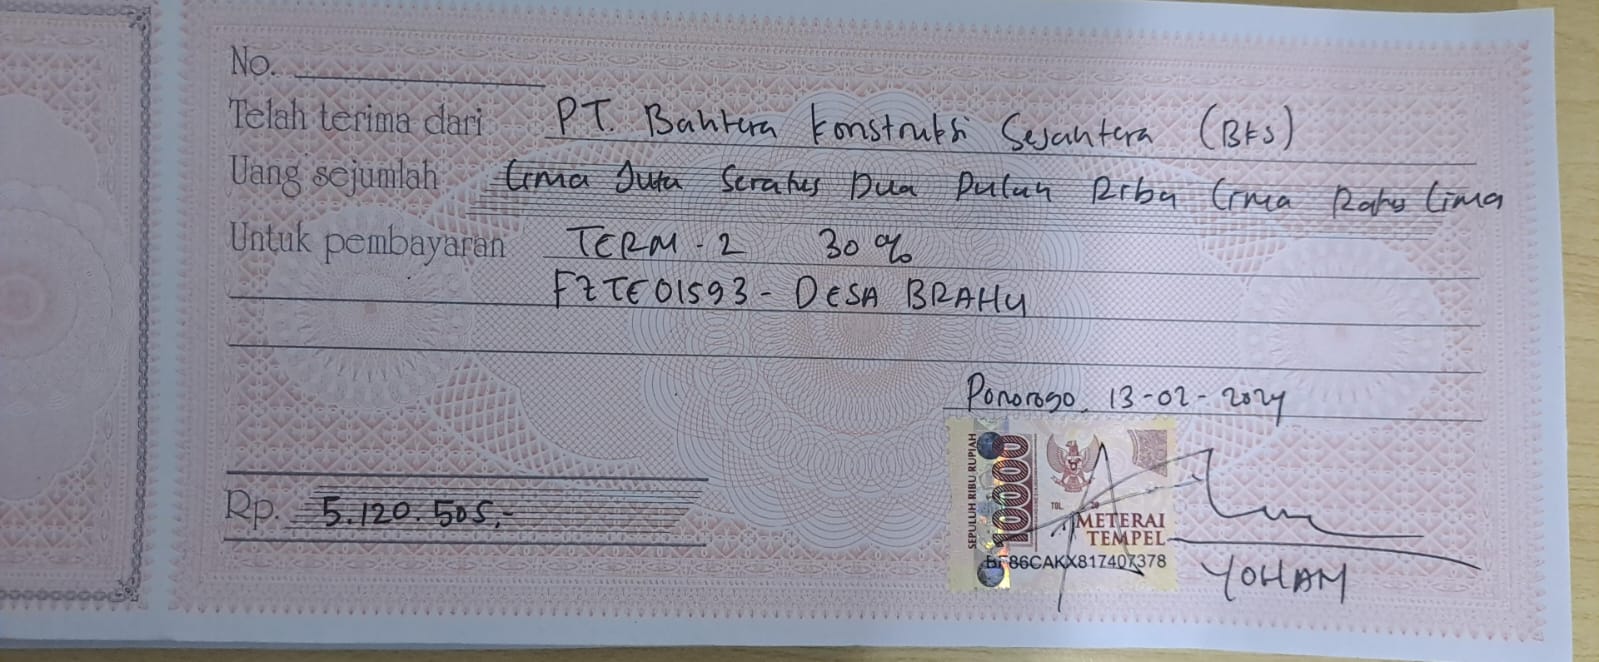 No.
Telah terima dari PT. Bahtera Konstruksi Sejahtera (BKS)
Uang sejumlah Lima Juta Seratus Dua Puluh Ribu Lima Ratus Lima
Untuk pembayaran TERM - 2 30 %
FZTE01593 - DESA BRAHU
Ponorogo, 13-02-2024
Rp. 5.120.505,-
SEPULUH RIBU RUPIAH
10000
TGL. 20
METERAI
TEMPEL
86CAKX817407378
YOHAM